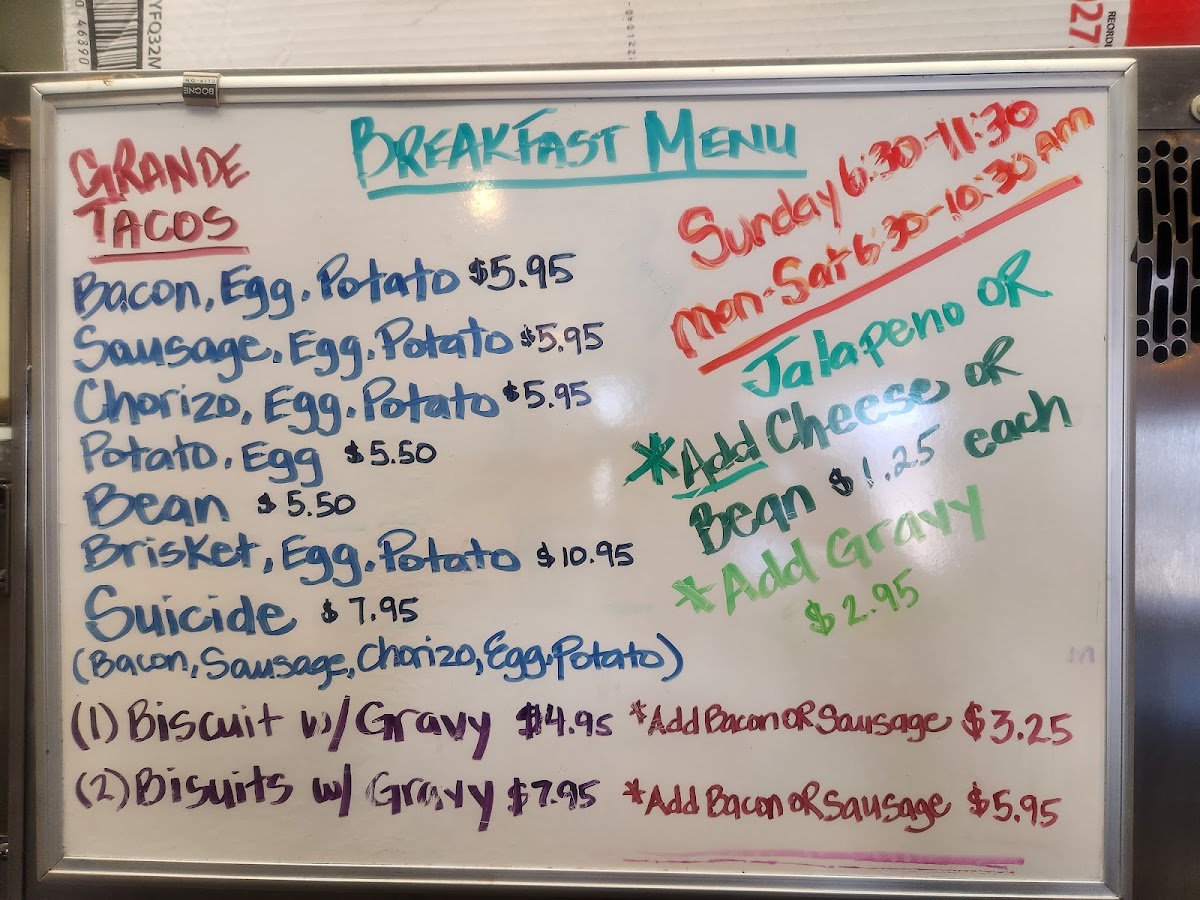 YFQ32W
0 46390
-040122
REORDE
027
BOONE
CLIP-ON
BREAKFAST MENU
GRANDE
TACOS
Sunday 6:30-11:30
Mon-Sat 6:30-10:30 AM
Bacon, Egg, Potato $5.95
Sausage, Egg, Potato $5.95
Chorizo, Egg, Potato $5.95
Potato, Egg $5.50
Bean $5.50
Brisket, Egg, Potato $10.95
Suicide $7.95
(Bacon, Sausage, Chorizo, Egg, Potato)
Jalapeno OR
*Add Cheese OR
Bean $1.25 each
*Add Gravy
$2.95
(1) Biscuit w/ Gravy $4.95 *Add Bacon OR Sausage $3.25
(2) Bisuits w/ Gravy $7.95 *Add Bacon OR Sausage $5.95